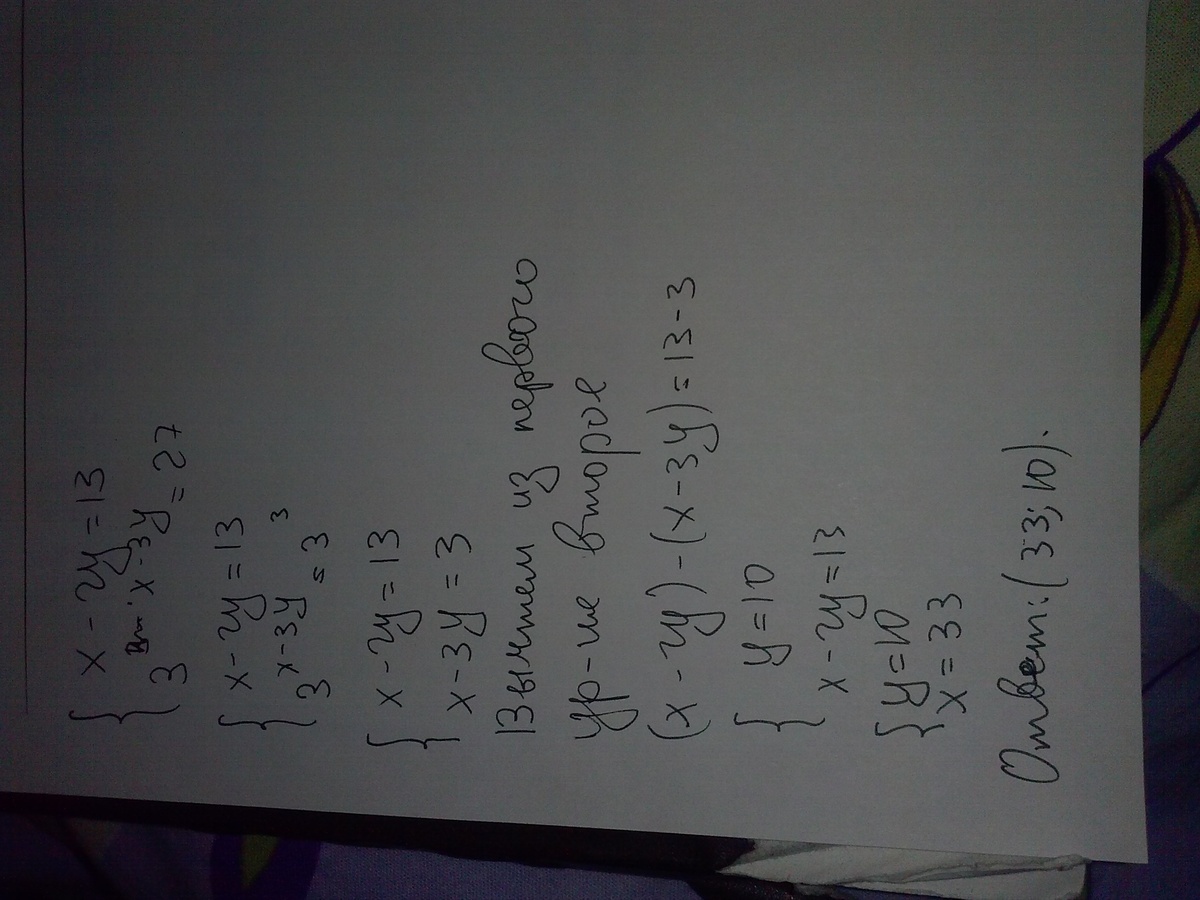 { x - 2y = 13
3^{x-3y} = 27
{ x - 2y = 13
3^{x-3y} = 3^3
{ x - 2y = 13
x - 3y = 3
Вычтем из первого
ур-ие второе
(x - 2y) - (x - 3y) = 13 - 3
{ y = 10
x - 2y = 13
{ y = 10
x = 33
Ответ: (33; 10).